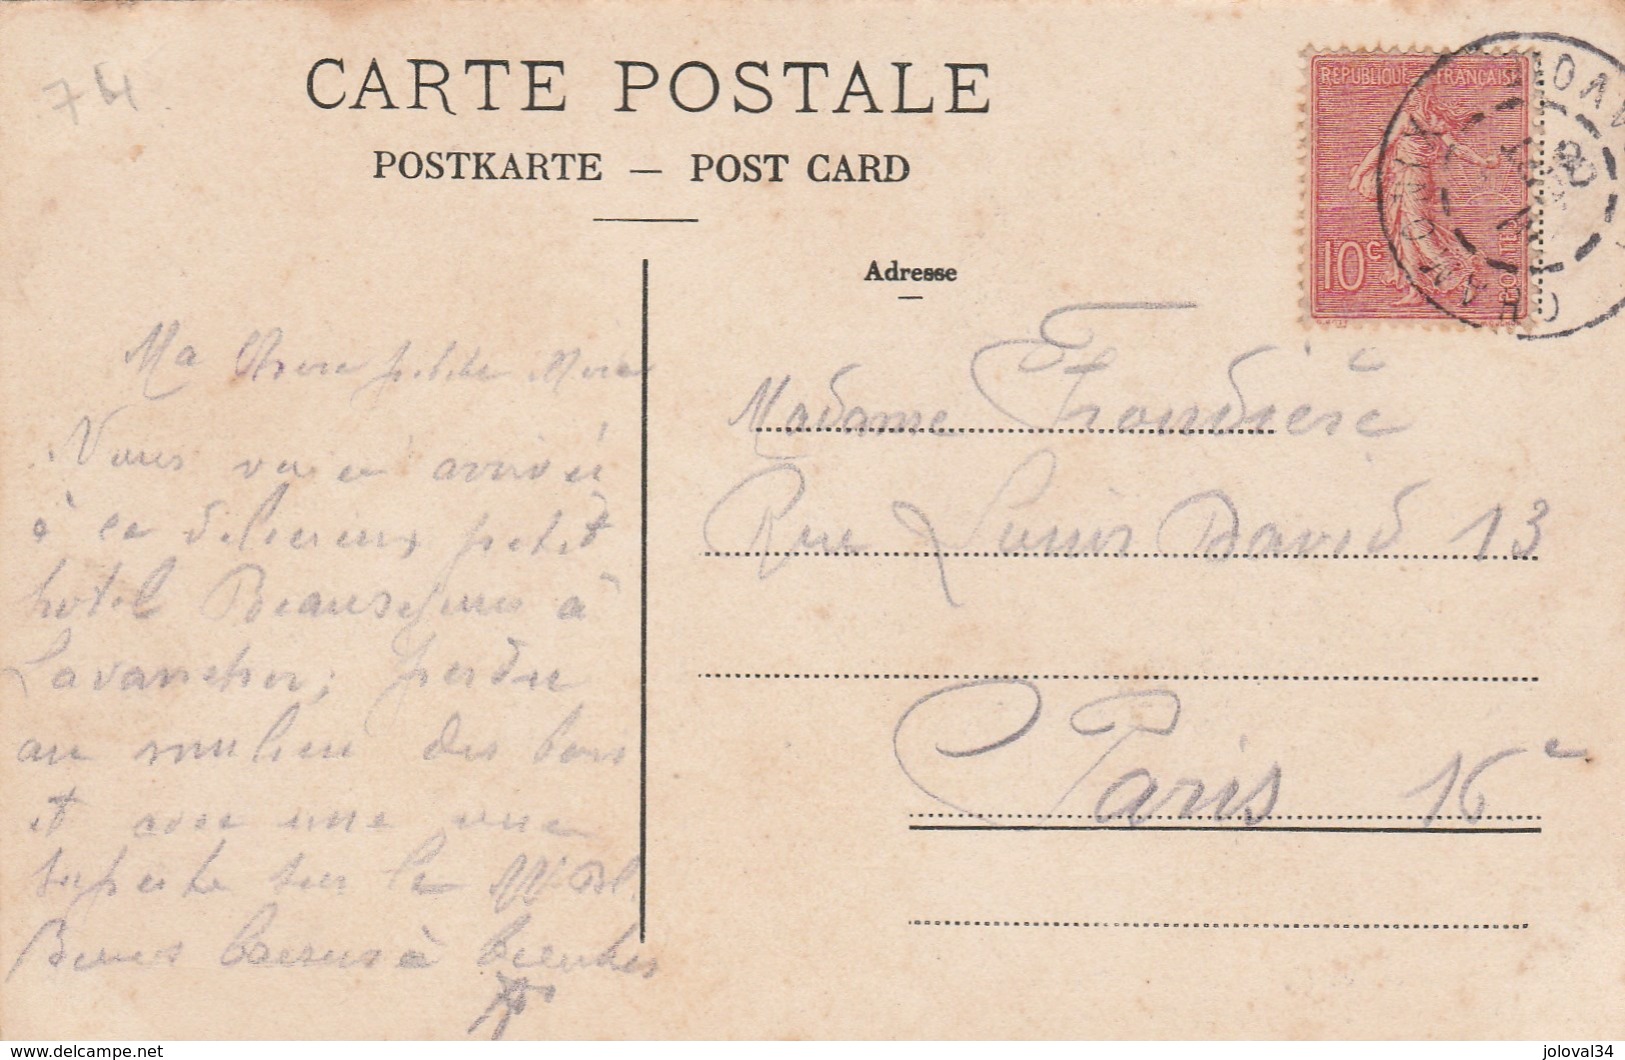 74
CARTE POSTALE
POSTKARTE — POST CARD
REPUBLIQUE FRANÇAISE
10c
POSTES
CHAMONIX
Adresse
Ma petite Mère
Nous arrivés
à ce délicieux petit
hotel Beauséjour à
Lavancher; perdu
au milieu des bois
et avec une vue
superbe sur le Mt Bl.
Bons baisers à bientôt
Madame Frondière
Rue Louis David 13
Paris 16e
www.delcampe.net
joloval34